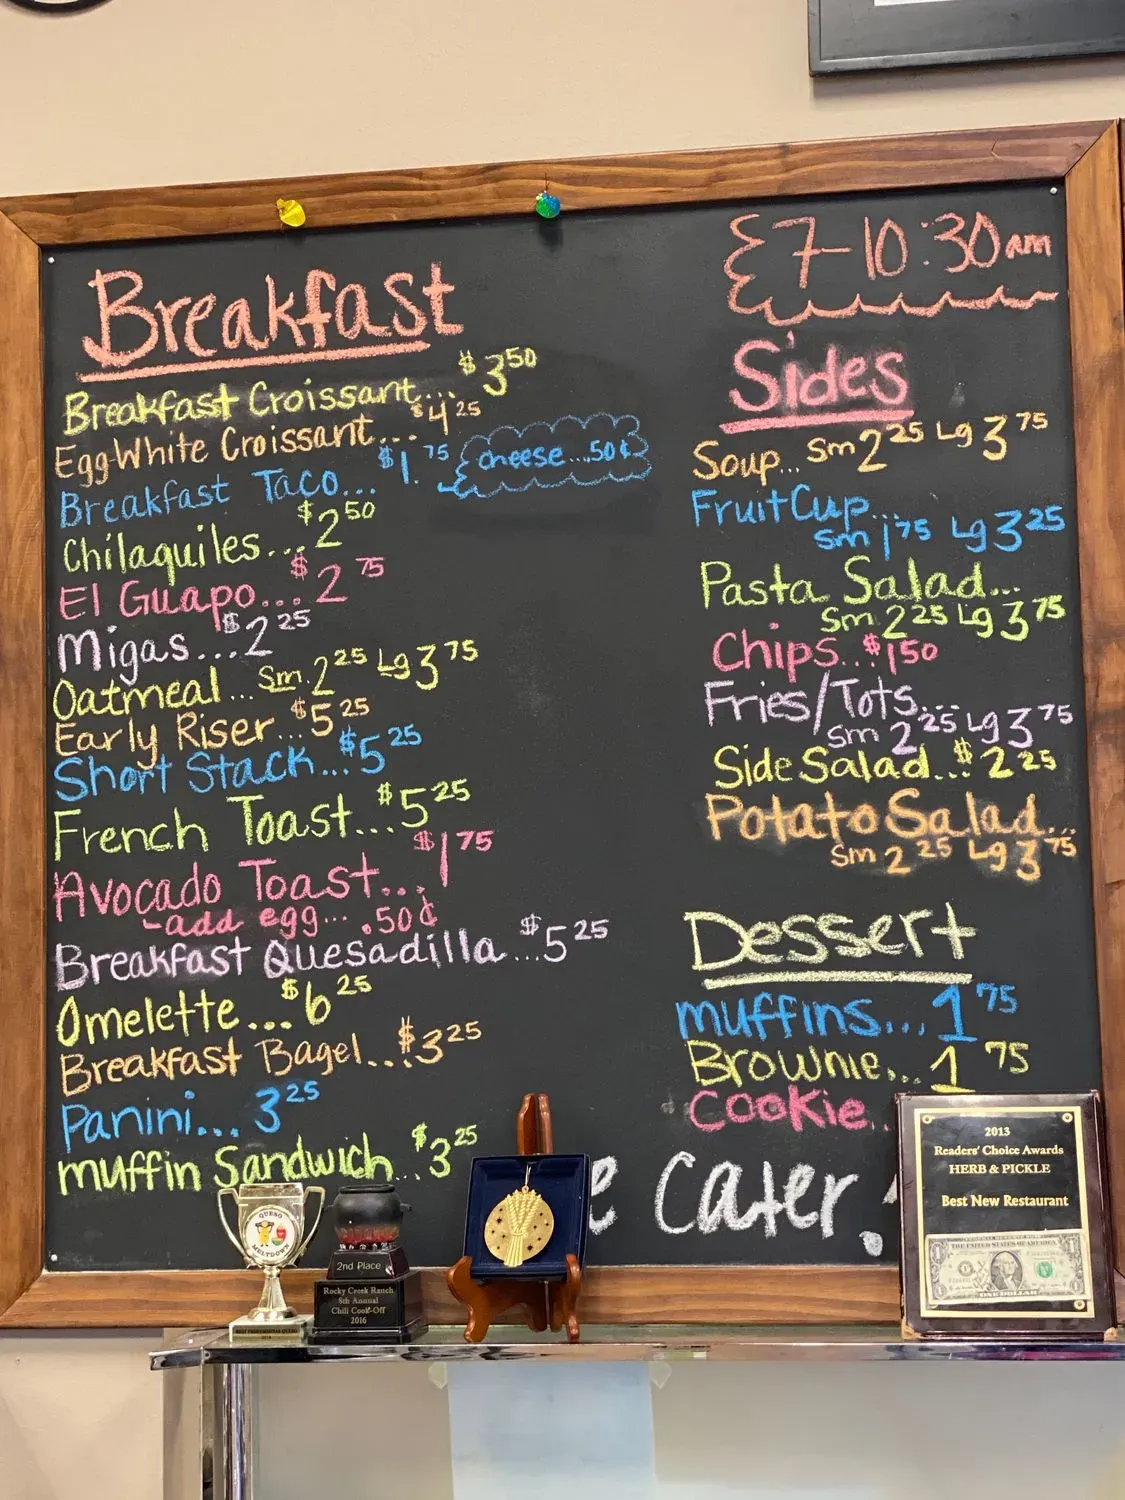 Breakfast
Breakfast Croissant... $3.50
Egg White Croissant... $4.25
Breakfast Taco... $1.75
cheese....50¢
Chilaquiles... $2.50
El Guapo... $2.75
Migas... $2.25
Oatmeal... Sm. 2.25 Lg 3.75
Early Riser... $5.25
Short Stack... $5.25
French Toast... $5.25
Avocado Toast... $1.75
-add egg... .50¢
Breakfast Quesadilla... $5.25
Omelette... $6.25
Breakfast Bagel... $3.25
Panini... 3.25
muffin Sandwich... $3.25
7-10:30am
Sides
Soup... Sm 2.25 Lg 3.75
Fruit Cup...
Sm 1.75 Lg 3.25
Pasta Salad...
Sm 2.25 Lg 3.75
Chips... $1.50
Fries/Tots...
Sm 2.25 Lg 3.75
Side Salad... $2.25
Potato Salad...
Sm 2.25 Lg 3.75
Dessert
muffins... 1.75
Brownie... 1.75
Cookie..
e Cater
QUESO
MELTDOWN
2nd Place
Rocky Creek Ranch
8th Annual
Chili Cook-Off
2016
2013
Readers' Choice Awards
HERB & PICKLE
Best New Restaurant
THE UNITED STATES OF AMERICA
ONE DOLLAR